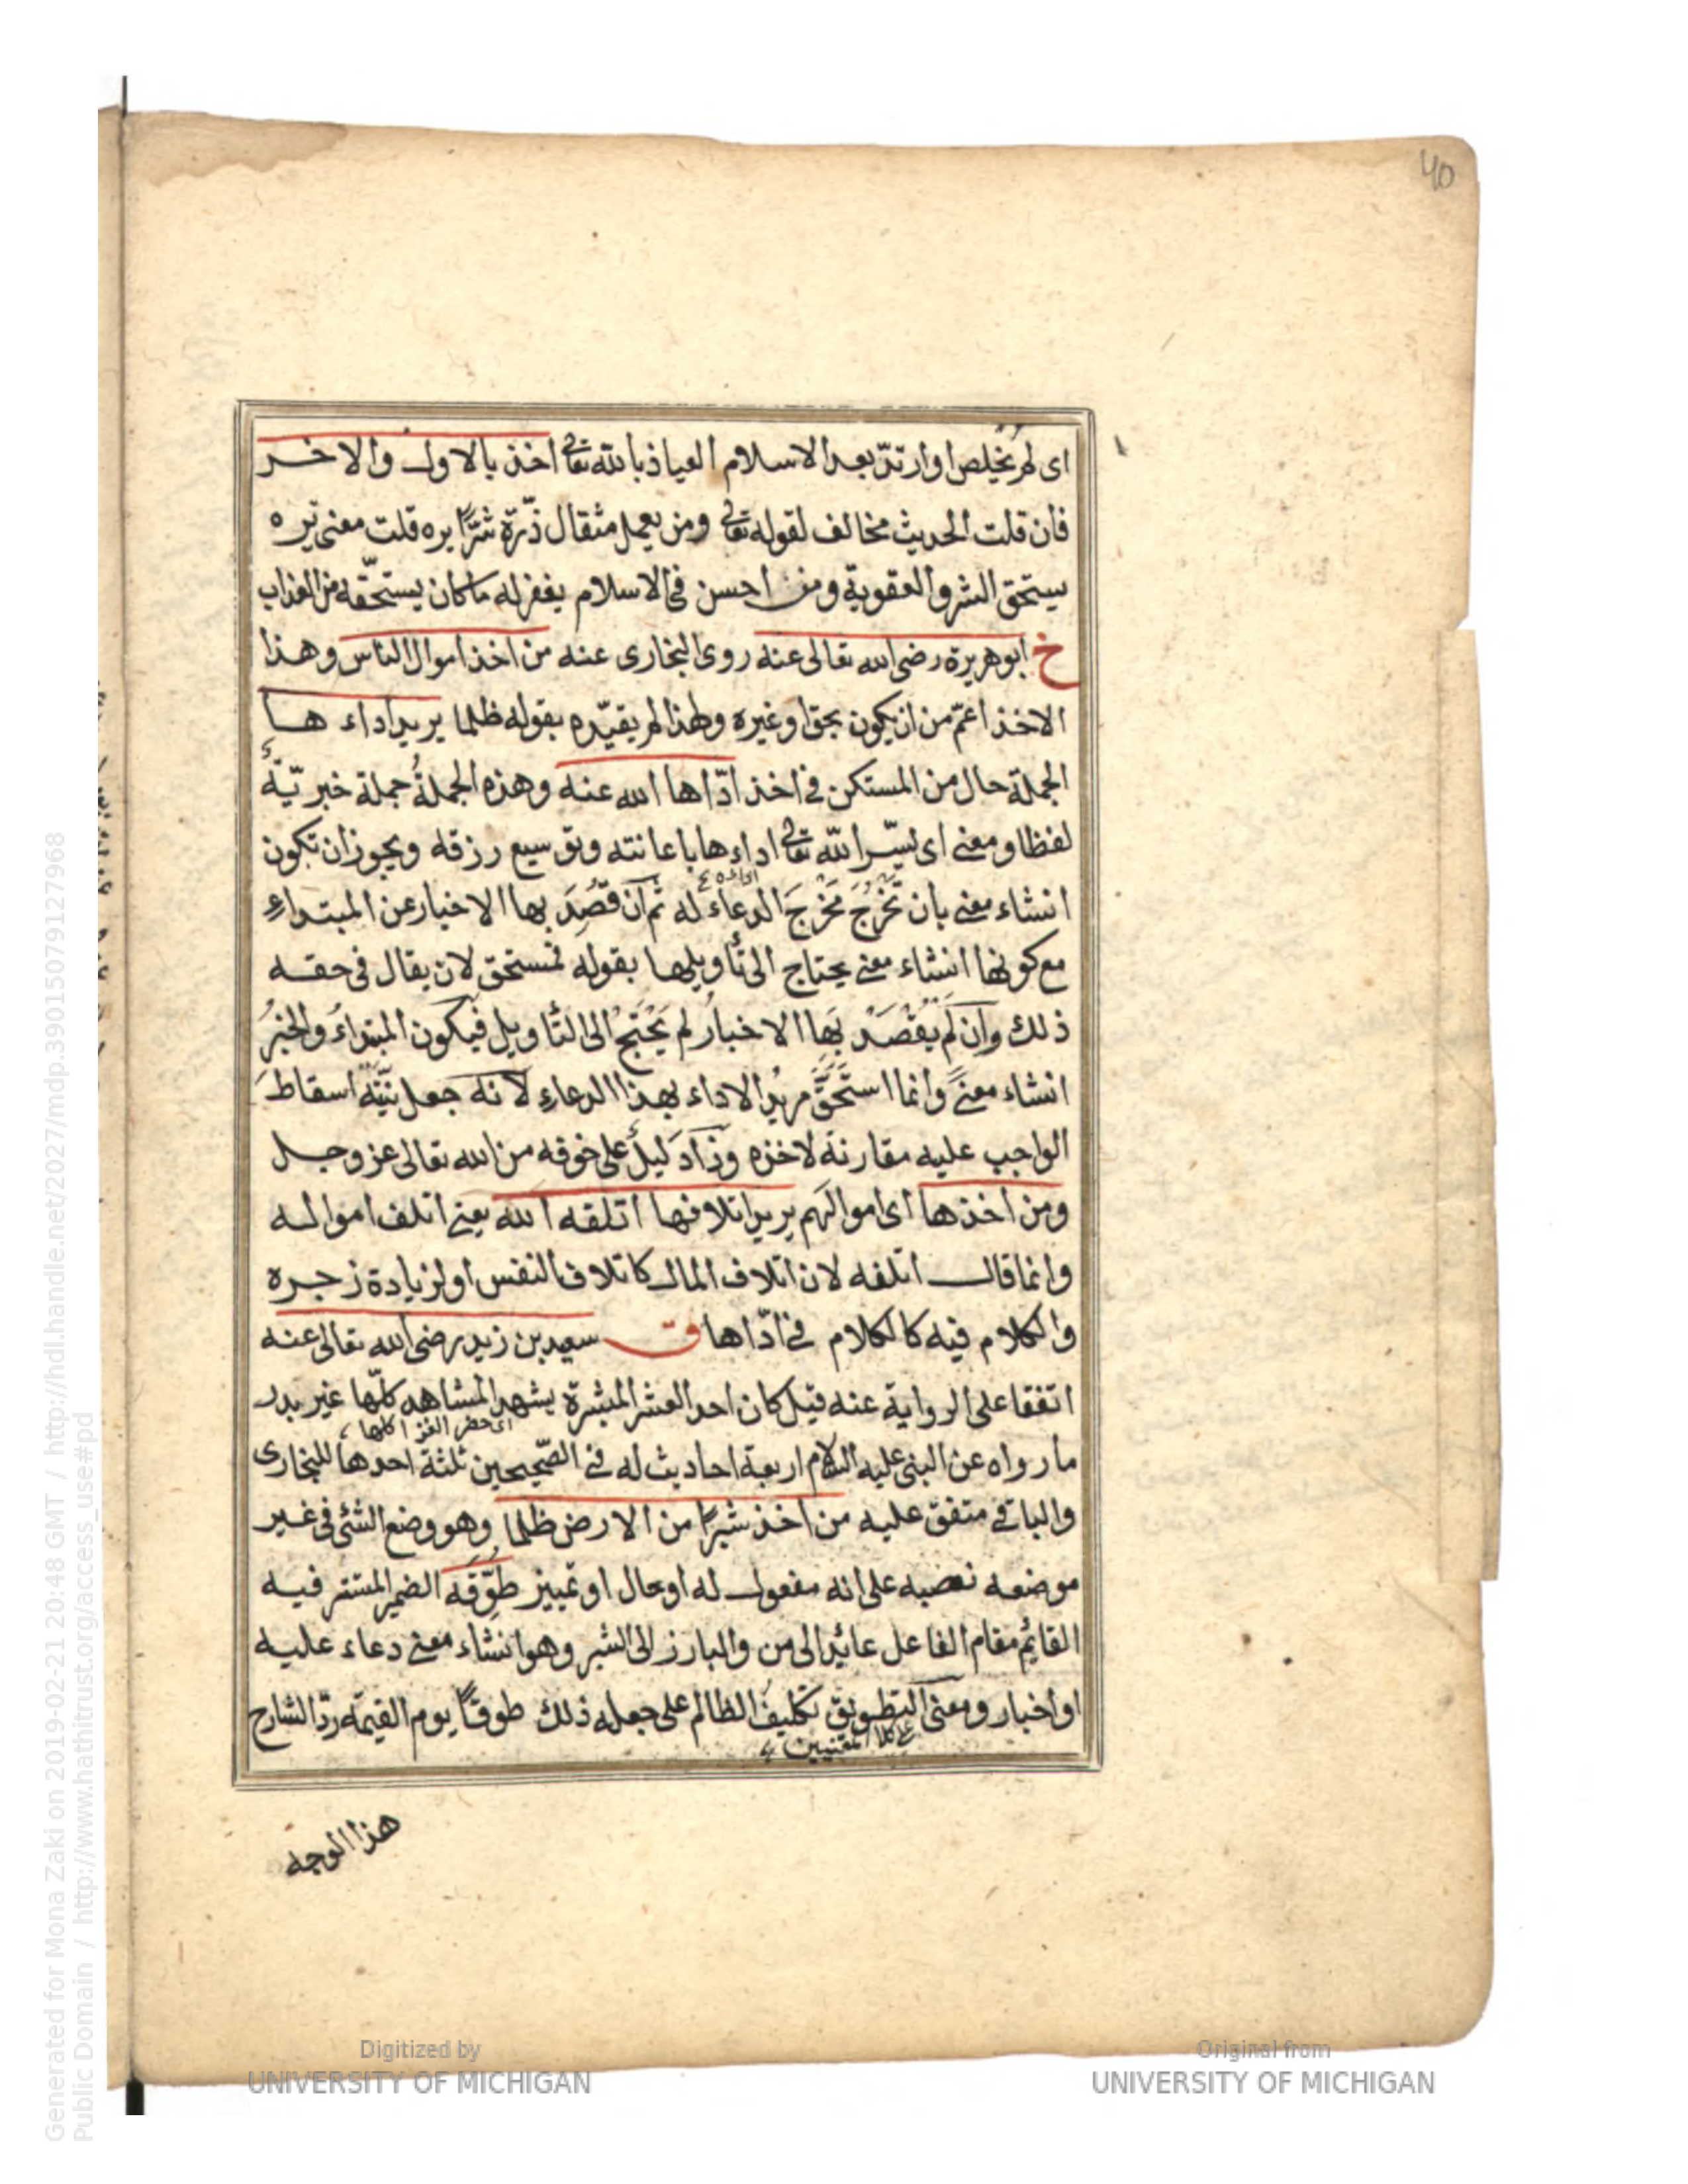 40
اى لم يُخلِص او ارتدّ بعد الاسلام العياذ بالله تعالى اخذ بالاول والاخر
فان قلت الحديث مخالف لقوله تعالى ومن يعمل مثقال ذرّة شرًّا يره قلت معنى يره
يستحق الشر والعقوبة ومن احسن فى الاسلام يغفر له ما كان يستحقّه من العذاب
خ ابو هريرة رضى الله تعالى عنه روى البخارى عنه من اخذ اموال الناس وهذا
الاخذ اعمّ من ان يكون بحق او غيره ولهذا لم يقيّده بقوله ظلما يريد اداء ها
الجملة حال من المستكن فى اخذ ادّاها الله عنه وهذه الجملةُ جملة خبريّةٌ
لفظا ومعنى اى يسّر الله تعالى اداءها باعانته وتوسيع رزقه ويجوز ان تكون
انشاء معنى بان تَخْرُجَ مَخْرَجَ الدعاء له ثم ان قُصِدَ بها الاخبار عن المبتداءِ
مع كونها انشاء معنى يحتاج الى تأويلها بقوله لمستحق لان يقال فى حقه
ذلك وان لَمْ يُقْصَدْ بِهَا الاخبارُ لم يَحْتَجْ الى التأويل فيكون المبتداءُ والخبرُ
انشاء معنىً وانما استَحَقَّ مريدُ الاداء بهذا الدعاءِ لانه جعل نيّتَه اسقاطَ
الواجب عليه مقارنة لاخذه وذا دَليلٌ على خوفه من الله تعالى عز وجل
ومن اخذها اى اموالهم يريد اتلافها اتلفه الله يعنى اتلف امواله
وانما قال اتلفه لان اتلاف المال كاتلاف النفس او لزيادة زجره
والكلام فيه كالكلام فى ادّاها ق سعيد بن زيد رضى الله تعالى عنه
اتفقا على الرواية عنه قيل كان احد العشر المبشرة يشهد المشاهد كلّها غير بدر
اى حضر الغزا كلها
ما رواه عن النبى عليه السلام اربعة احاديث له فى الصّحيحين ثلثة احدها للبخارى
والباقى متفق عليه من اخذ شبرًا من الارض ظلما وهو وضع الشئ فى غير
موضعه نصبه على انه مفعول له او حال او تمييز طُوِّقَه الضمير المستتر فيه
القايم مقام الفاعل عائد الى من والبارز الى الشبر وهو انشاء معنى دعاء عليه
او اخبار ومعنى التطويق تكليفُ الظالم على جعله ذلك طوقًا يوم القيمة ردّ الشارح
هذا الوجه
Generated for Mona Zaki on 2019-02-21 20:48 GMT / http://hdl.handle.net/2027/mdp.39015079127968
Public Domain / http://www.hathitrust.org/access_use#pd
Digitized by
UNIVERSITY OF MICHIGAN
Original from
UNIVERSITY OF MICHIGAN